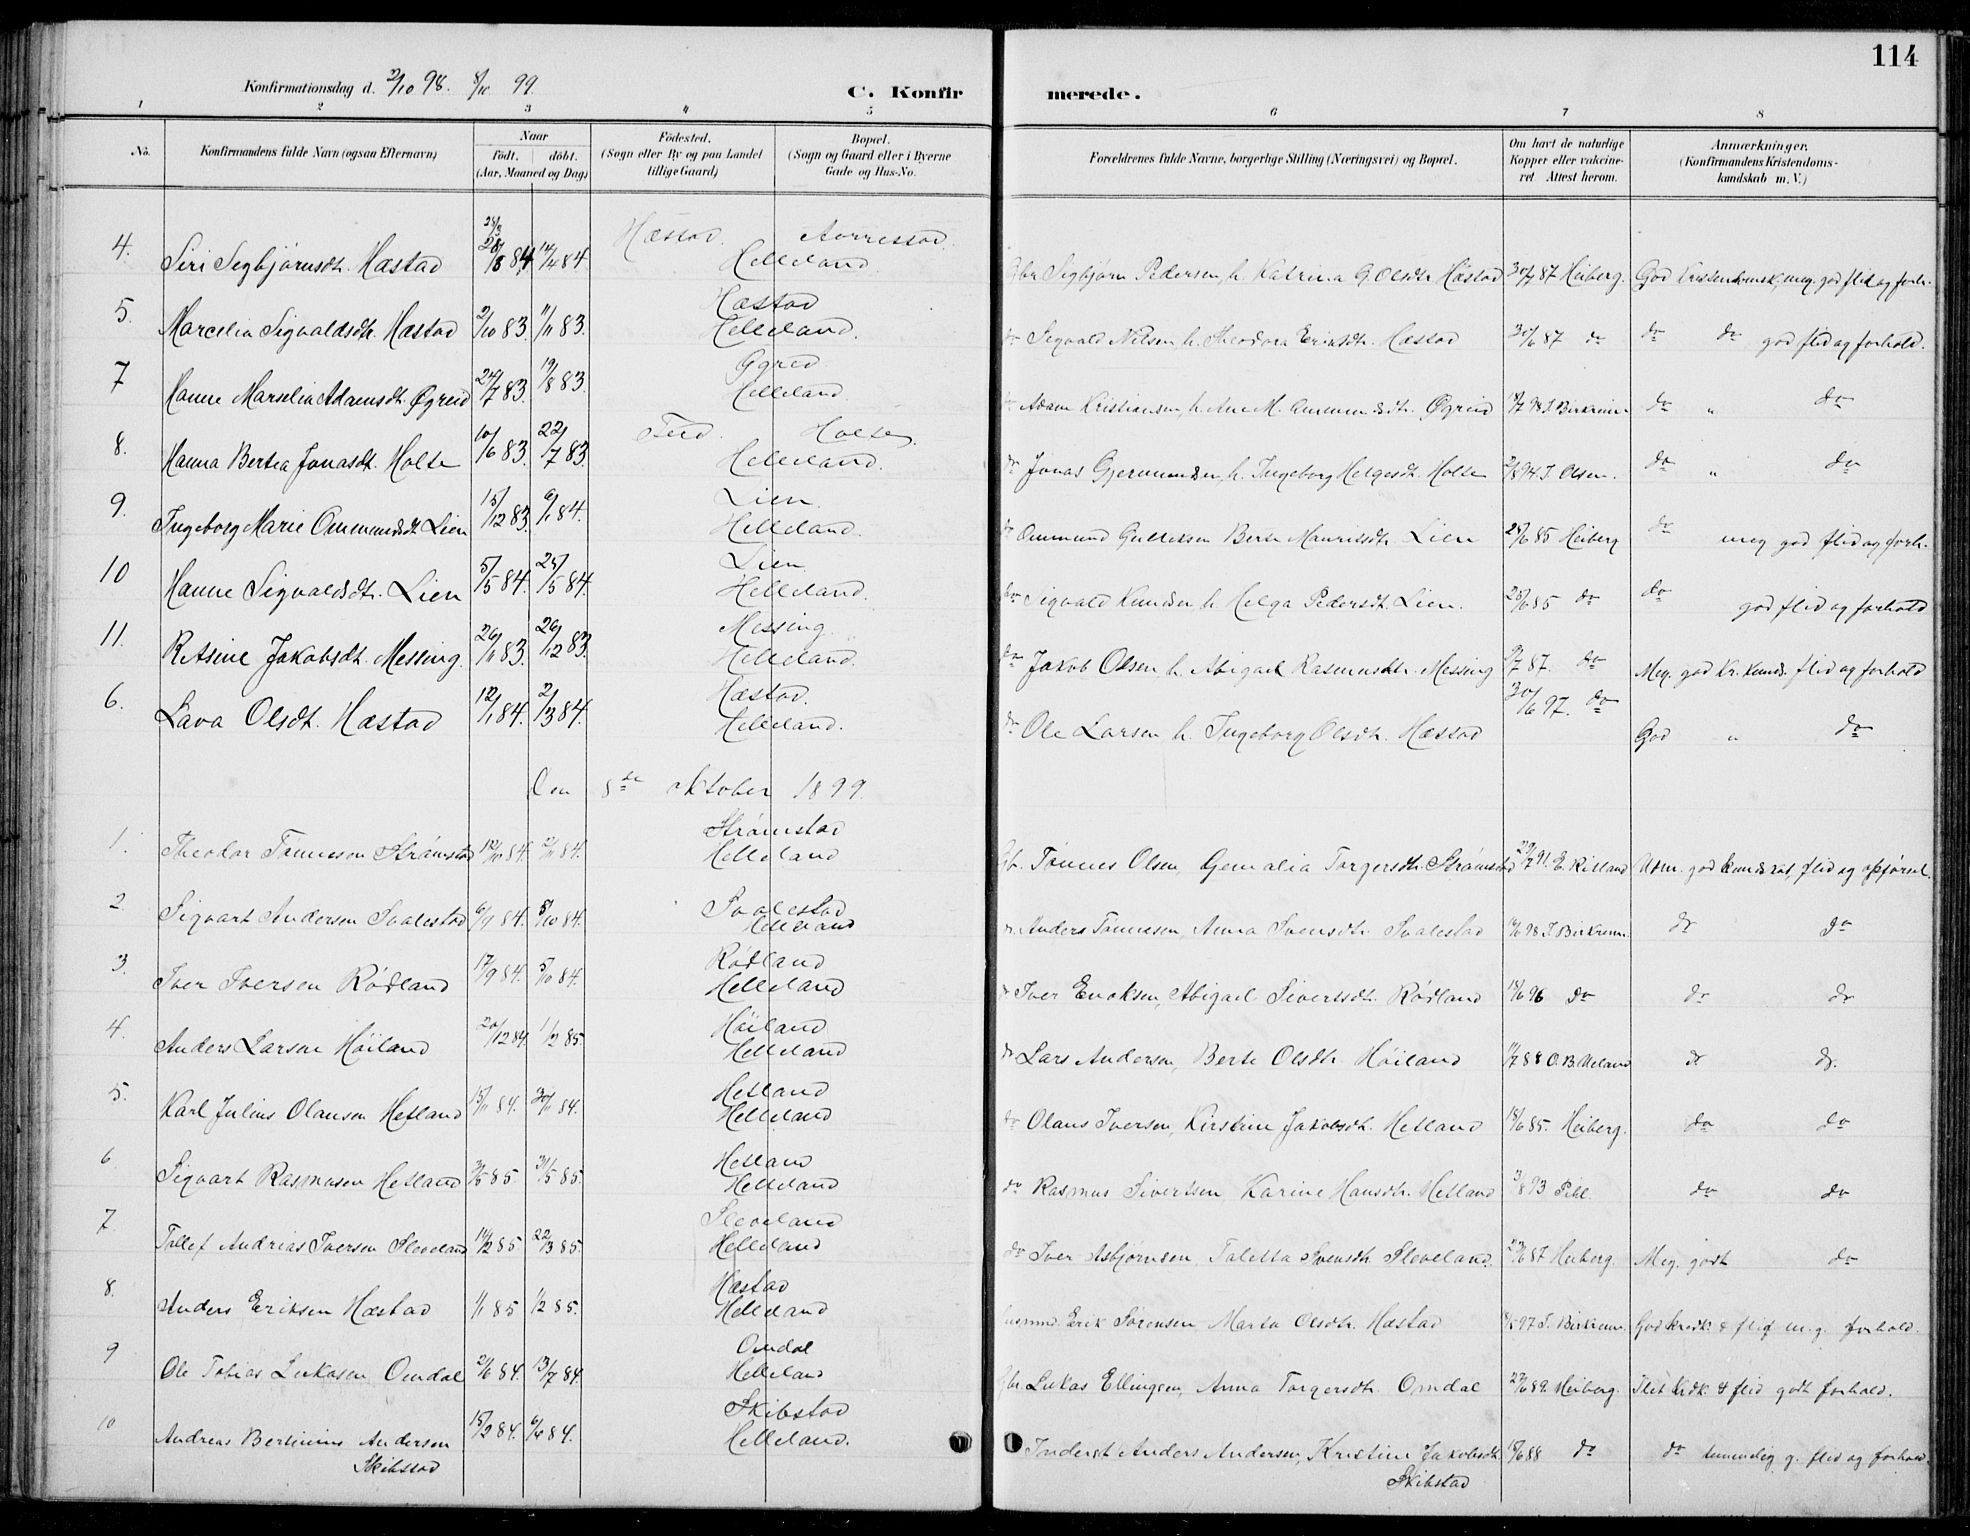 114
Konfirmationsdag d. 2/10 98. 8/10 99.
C. Konfirmerede.
1 2 3 4 5 6 7 8
No. Konfirmandens fulde Navn (ogsaa Efternavn) Naar født. døbt. (Aar, Maaned og Dag) Fødested. (Sogn eller By og paa Landet tillige Gaard) Bopæl. (Sogn og Gaard eller i Byerne Gade og Hus-No. Forældrenes fulde Navne, borgerlige Stilling (Næringsvei) og Bopæl. Om havt de naturlige Kopper eller vakcineret Attest herom. Anmærkninger. (Konfirmandens Kristendomskundskab m. V.)
4. Siri Segbjørnsdt. Hæstad 84 14/4 84. Hæstad. Aarrestad. Helleland. Gbr Segbjørn Pedersen, h. Katrina G. Olsdtr Hæstad 87 Heiberg. God kristendomsk, meg. god flid og forh.
5. Marcelia Sigvaldsdt. Hæstad 2/10 83. 11/11 83. Hæstad Helleland. do Sigvald Nilsen h. Theodora Eriksdt. Hæstad 30/6 87 do do do god flid og forhold.
7 Hanne Marselia Adamsdt. Øgreid 24/7 83. 19/8 83. Øgreid Helleland. Adam Kristiansen h. Ane M. Ommundsdt. Øgreid 98 T. Birkrem do " do
8. Hanna Bertea Jonasdt. Holte 10/6 83. 22/7 83. Holte Helleland. do Jonas Gjermundsen, h. Ingeborg Helgesdt. Holte 94 T. Olsen. do " do
9. Ingeborg Marie Ommundsdt Lien 15/12 83. 6/1 84. Lien Helleland. do Ommund Gullaksen Berte Mauritsdtr Lien 25/6 85 Heiberg do meg god flid og forh.
10 Hanne Sigvaldsdt. Lien 5/5 84. 25/5 84. Lien Helleland. do Sigvald Knudsen h. Helga Pedersdt. Lien. 25/6 85 do do god flid og forhold
11. Rasine Jakobsdt. Messing. 26/11 83. 26/12 83. Messing. Helleland. do Jakob Olsen h. Abigael Rasmusdtr. Messing 87. do Meg. god kr. kunds. flid og forhold
6. Lava Olsdt. Hæstad 12/1 84. 2/3 84. Hæstad. Helleland. do Ole Larsen h. Ingeborg Olsdt. Hæstad 30/6 97. do God " do
Den 8de Oktober 1899.
1. Theodor Tønneson Strømstad 12/10 84. 2/11 84. Strømstad Helleland Gb. Tønnes Olsen, Gemalia Torgersdt. Strømstad 29/7 91. E. Risland Utm. god kundskab, flid og opførsel.
2. Sigvart Andersen Svalestad 6/9 84. 5/10 84. Svalestad Helleland do Anders Tønnesen, Anna Svensdt. Svalestad 98 T. Birkrem. do do
3. Iver Iversen Rødland 17/9 84. 5/10 84. Rødland Helleland Iver Enoksen, Abigael Sivertsdt. Rødland 18/6 96 do do do
4. Anders Larsen Høiland 20/12 84. 1/2 85. Høiland Helleland do Lars Andersen, Berte Olsdt. Høiland 88 O. B. Ueland do do.
5. Karl Julius Olausen Hetland 15/11 84. 30/11 84. Hetland Helleland do Olaus Iversen, Kirstine Jakobsdt. Hetland 18/6 85. Heiberg. do do
6 Sigvart Rasmusen Hetland 3/5 85. 31/5 85. Hetland Helleland do Rasmus Sivertsen, Karine Hansdt. Hetland 3/8 93 do do
7 Tollef Andreas Iversen Sleveland 14/2 85. 22/3 85. Sleveland Helleland do Iver Asbjørnsen, Taletta Svensdt. Sleveland. 87 Heiberg. Meg. godt do
8. Anders Eriksen Hæstad 1/1 85 1/2 85. Hæstad Helleland Husmd. Erik Sørensen Marta Olsdt. Hæstad 97 T. Birkrem. God krdk. & flid m. g. forhold.
9 Ole Tobias Lukasen Omdal 2/6 84. 13/7 84. Omdal Helleland Gbr Lukas Ellingsen, Anna Torgersdt. Omdal 89. Heiberg. Slet krdk. & flid godt forhold.
10 Andreas Bertinius Andersen Skibstad 15/2 84. 6/4 84. Skibstad Helleland. Inderst Anders Andersen, Kristine Jakobsdt. Skibstad 88 do do temmelig g. flid og forhold.